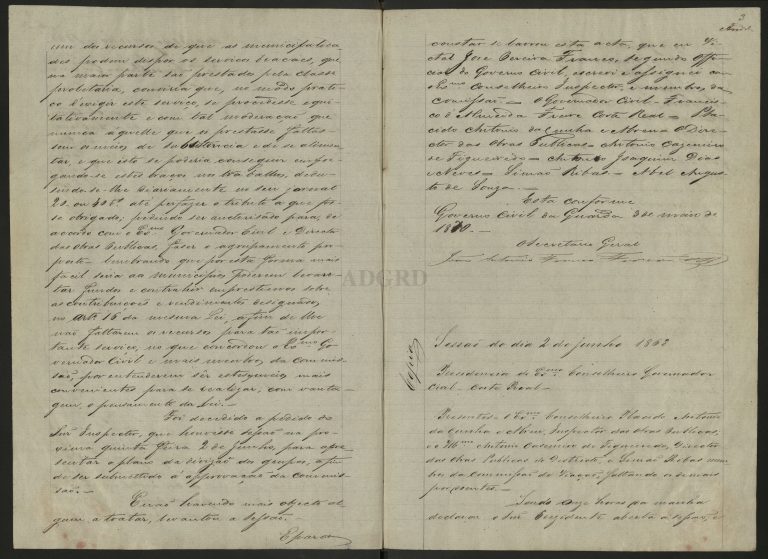 um dos recursos de que as municipalida
des podem dispor os serviços braçaes, que
na maior parte são prestados pela classe
proletaria, conviria que, no modo prati
co d'exigir este serviço, se procedesse equi
tativamente e com tal moderação que
nunca áquelle que os prestasse faltas
sem os meios de subsistencia e de se alimen
tar, e que isto se poderia conseguir empre
gando-se estes braços nos trabalhos, dedu
sindo-se-lhe diariamente no seu jornal
20 ou 40 rs. até perfazer o tributo a que fos
se obrigado; pedindo ser auctorisado para, de
accordo com o Exmo Governador Civil e Director
das Obras Publicas, fazer o agrupamento pro
posto lembrando que por esta forma mais
facil seria aos municipios poderem levan
tar fundos e contrahir emprestimos sobre
as contribuições e rendimentos designados
no artº 16 da mesma Lei, afim de lhe
não faltarem os recursos para tão impor
tante serviço, no que concordou o Exmo Go
vernador Civil e mais membros da Commis
são, por entenderem ser estes meios mais
convenientes para se realizar, com vanta
gem, o pensamento da Lei.—
Foi decidido a pedido do
Snr Inspector, que houvesse sessão na pro
xima quinta feira 2 de Junho, para apre
sentar o plano da divisão dos grupos, a fim
de ser submettido á approvação da Commis
são.—
E não havendo mais objecto al
gum a tratar, levantou a sessão.—
E para
3
constar se lavrou esta acta, que eu Vi
tal José Pereira Franco, segundo Offi
cial do Governo Civil, escrevi e assignei com
o Exmo Conselheiro Inspector, e membros da
Commissão.— O Governador Civil - Francis
co d'Almeida Freire Corte Real — Pla
cido Antonio da Cunha e Abreu - O Dire
ctor das Obras Publicas - Antonio Cazemiro
de Figueiredo - Antonio Joaquim Dias
Neves - Simão Ribas - Abel Augus
to de Souza.—
Está conforme
Governo Civil da Guarda 3 de maio de
1870.—
O Secretario Geral
ADGRD
Copia
Sessão do dia 2 de Junho 1868
Presidencia do Exmo Conselheiro Governador
Civil - Corte Real—
Presentes o Exmo Conselheiro Placido Antonio
da Cunha e Abreu, Inspector das Obras Publicas,
e o Illmo Antonio Casimiro de Figueiredo, Director
das Obras Publicas do Districto, e Simão Ribas mem
bro da Commissão de Viação, faltando os demais
por doentes.—
Sendo onze horas da manhã
declarou o Snr Presidente aberta a sessão, e